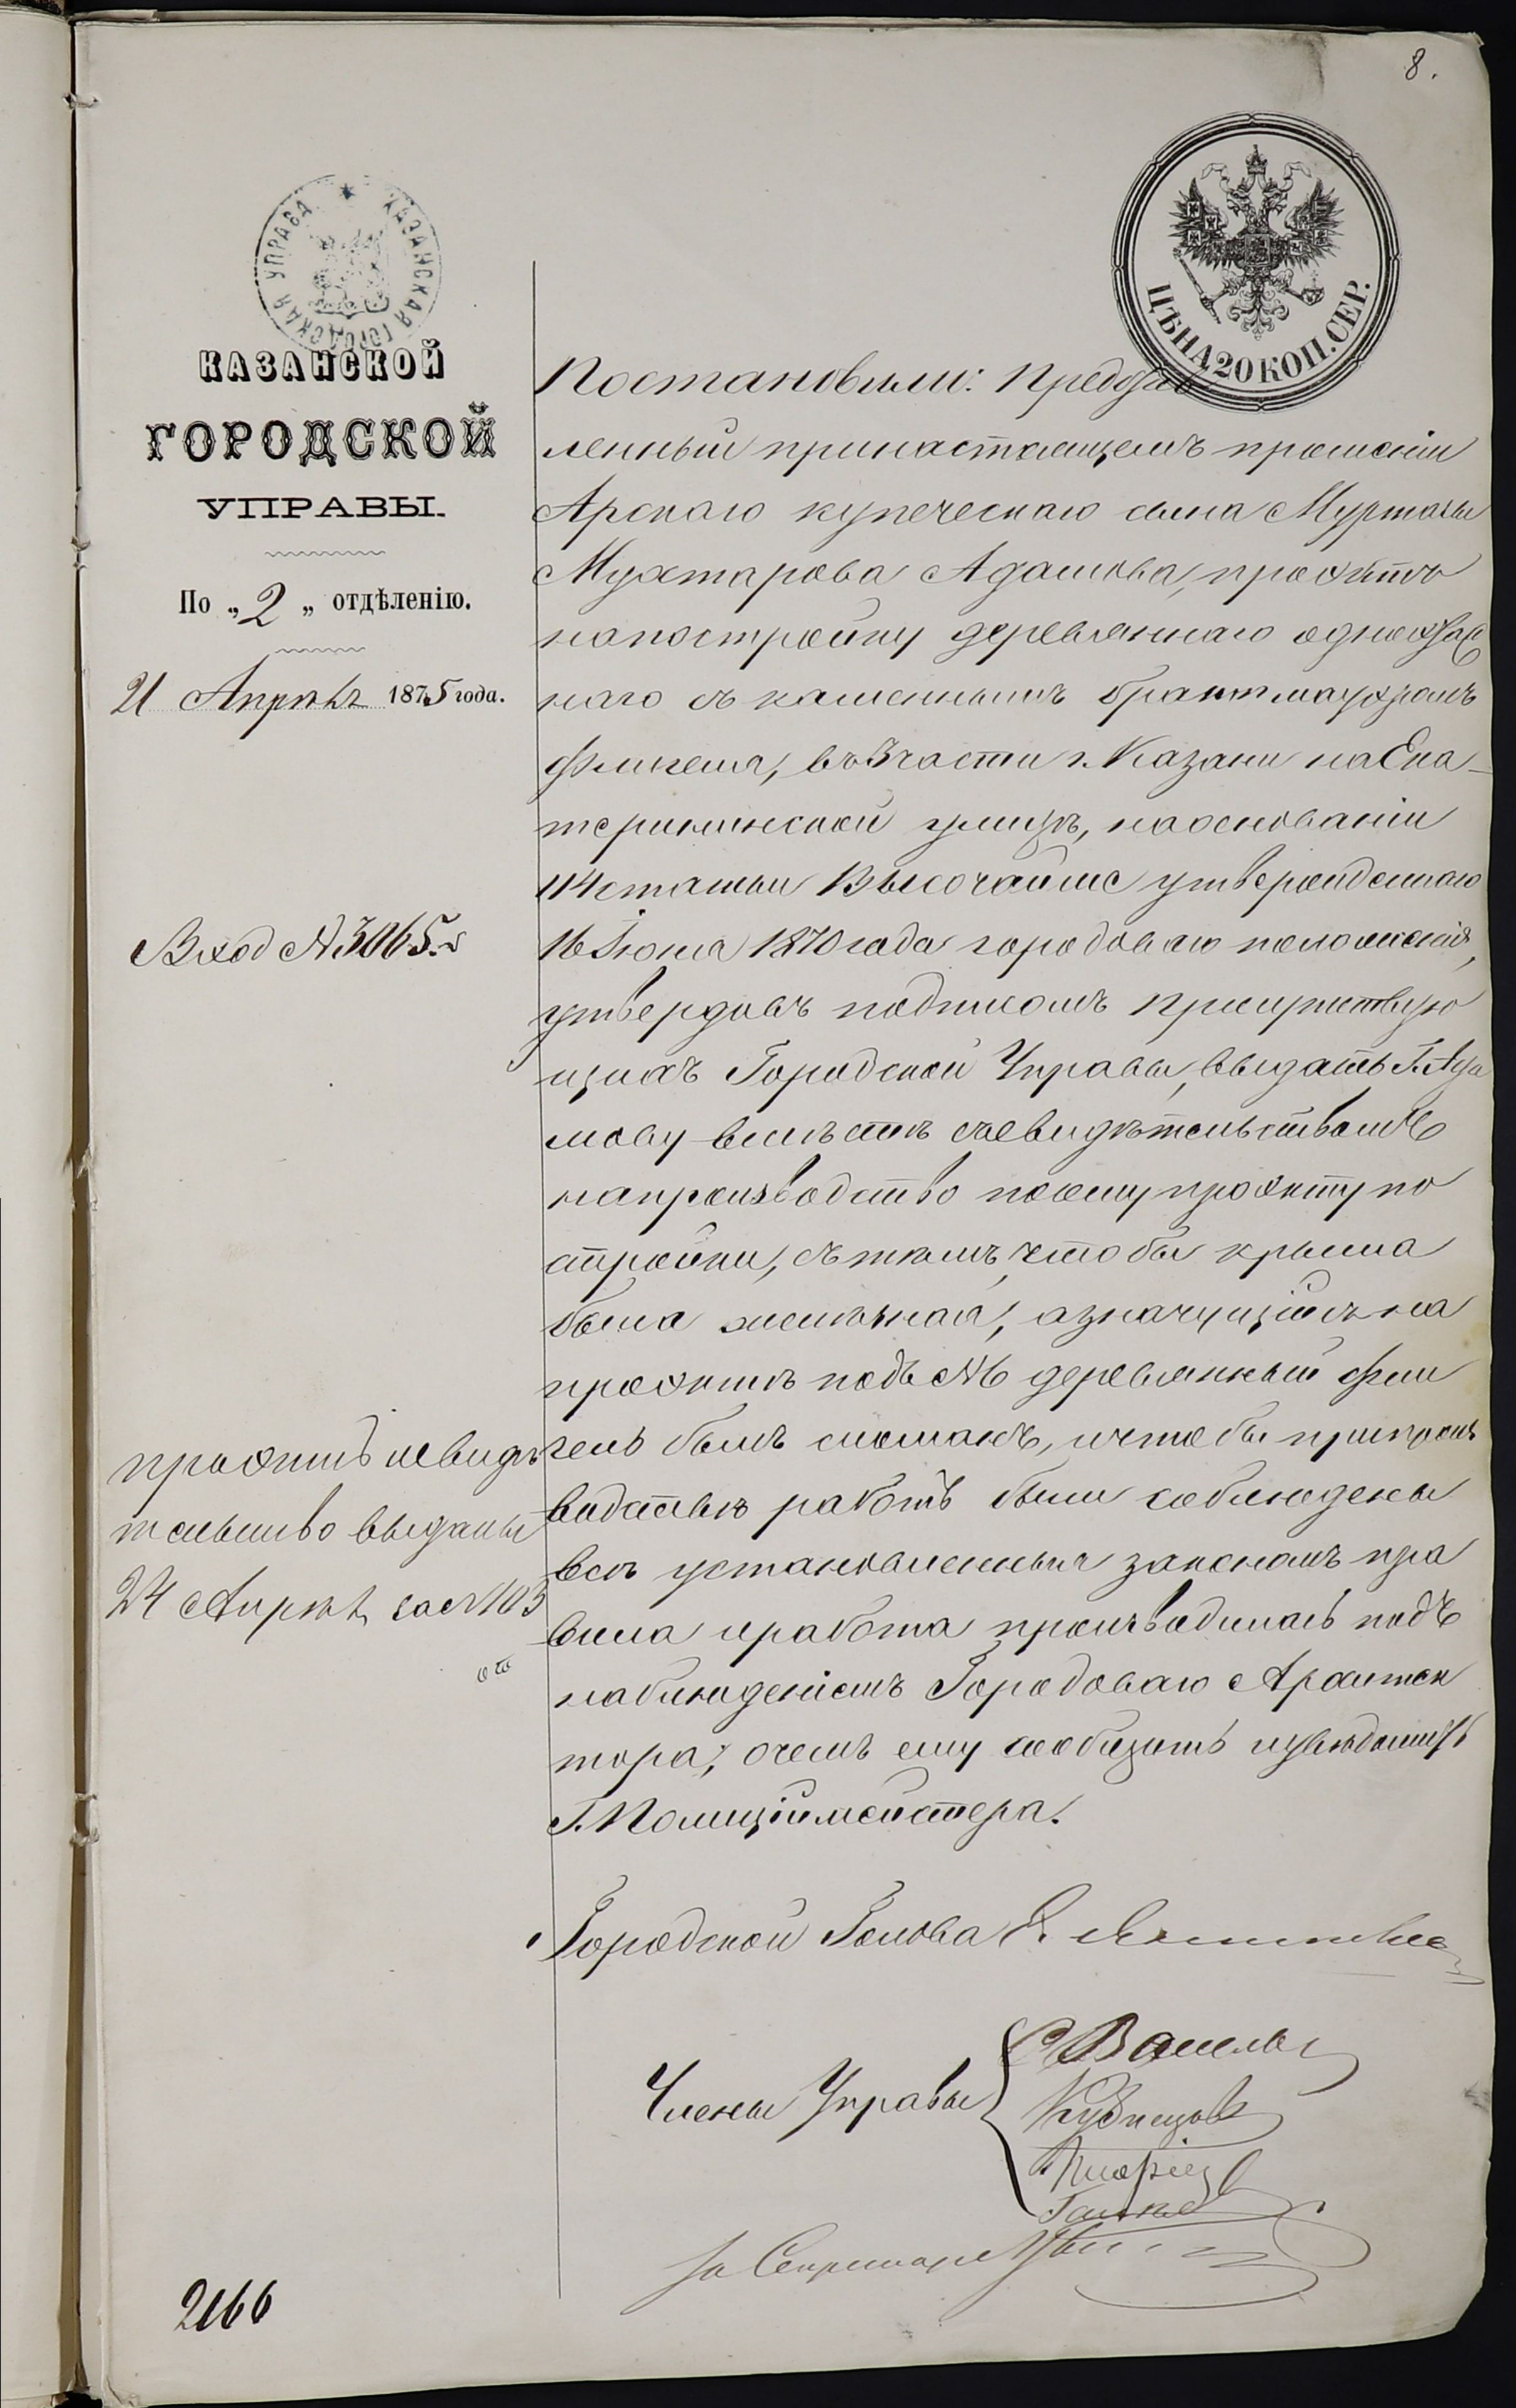 8.
КАЗАНСКАЯ ГОРОДСКАЯ УПРАВА
ЦѢНА 20 КОП. СЕР.
КАЗАНСКОЙ
ГОРОДСКОЙ
УПРАВЫ.
По „2„ отдѣленію.
21 Апрѣля 1875 года.
Вход №3065.
проэктъ и свидѣ
тельство выданы
24 Апрѣля за №103
2166
Постановили: Представ
ленный принастоящемъ прошеніи
Арскаго купеческаго сына Муртазы
Мухтарова Адамова, проэктъ
напостройку деревяннаго одноэтаж
наго съ каменнымъ брантмауэромъ
флигеля, въ 3 части г. Казани на Ека-
терининской улицѣ, наоснованіи
114 статьи Высочайше утвержденнаго
16 Іюня 1870 года городоваго положенія,
утвердивъ подписомъ присутствую
щихъ Городской Управы, выдать Г. Ада
мову вмѣстѣ съ свидѣтельствомъ
напроизводство поэтому проэкту по
стройки, съ тѣмъ, чтобы крыша
была желѣзная, азначущійся на
проэктѣ подъ №6 деревянный фли
гель былъ сломанъ, ичтобы припроиз
водствѣ работъ были соблюдены
всѣ установленныя закономъ пра
вила иработа производилась подъ
наблюденіемъ Городоваго Архитек
тора, очемъ ему сообщить иувѣдомить
Г. Полиціймейстера.
Городской Голова
Члены Управы
Кузнецовъ
За Секретаря